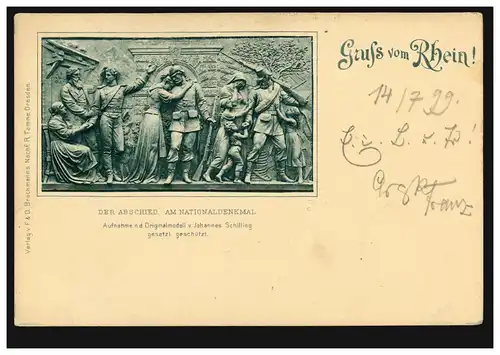 Gruss vom Rhein!
14/7 99.
DER ABSCHIED, AM NATIONALDENKMAL
Aufnahme n.d. Originalmodell v. Johannes Schilling
gesetzl. geschützt.
Verlag v. F. & O. Brockmann's Nachf. R. Tamme, Dresden
Franz